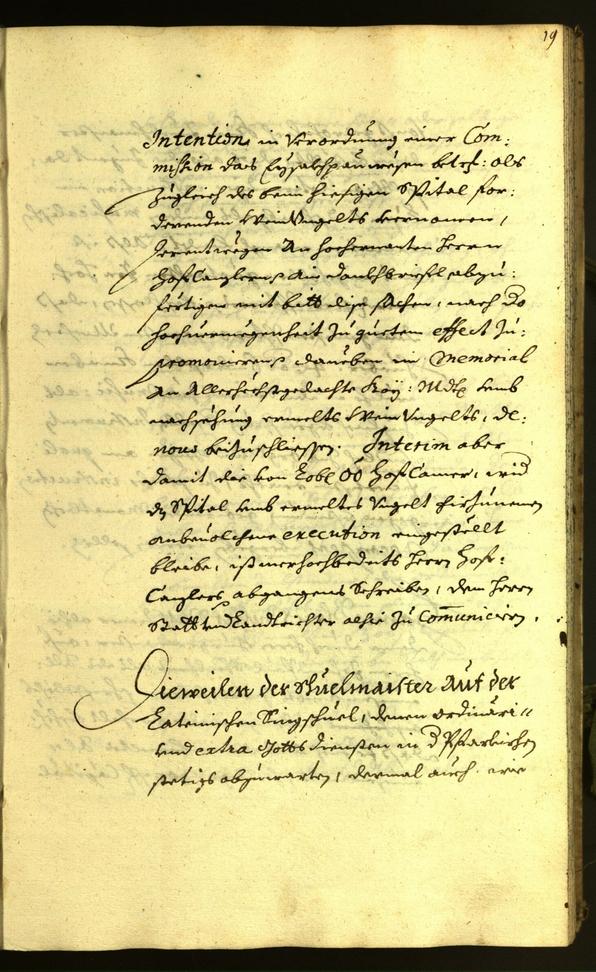 19
Intention, in Verordnung einer Com:
mission das Eysakhpauwesen betrf: als
zugleich des beim hiesigen Spital for:
derenden WeinVngelts vernomen,
derentwegen An hochernanten Herrn
HofCanzlern ain dankhbriefl abzu:
fertigen mit bitt dise sachen, nach
hochuermögenheit zu guetem effect zu:
promouieren daneben im Memorial
An Allerhöchstgedachte Kay: Mtt: vmb
nachsehung ermelts WeinVngelts, de:
nouo beizuschliessen. Interim aber
damit die von Löbl: OÖ HofCamer, wid
dz Spital vmb ermeltes Vngelt
anbeuolchne execution eingestellt
bleibe, ist mer hochbedeits Herrn Hof:
Canzlers abgangens Schreiben, dem Herrn
Statt vnd Landrichter alhie zu Comunicirn.
Dieweilen der Schuelmaister Auf der
Lateinischen Singschuel, denen ordinari
vnd extra Gottsdiensten in d Pfarkirchen
stetigs abzuwarten, dermal auch wie